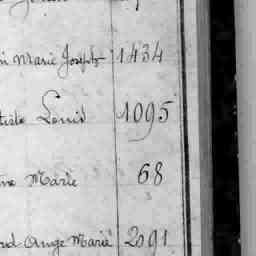 Marie Joseph 1434
Louis 1095
Marie 68
Ange Marie 2091